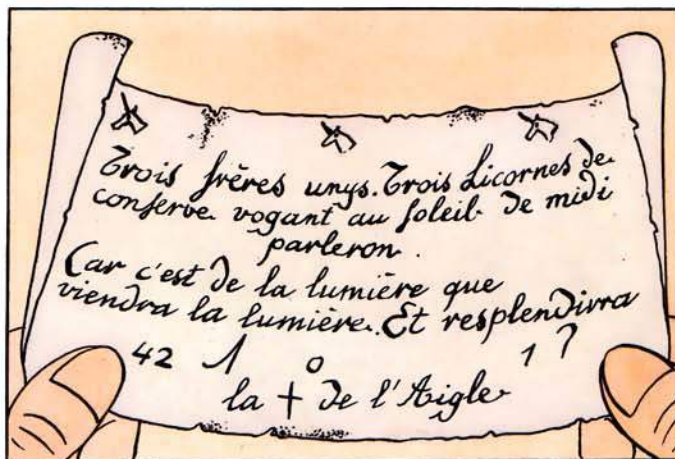 Trois frères unys. Trois Licornes de
conserve vogant au soleil de midi
parleron.
Car c'est de la lumière que
viendra la lumière. Et resplendirra
42 1 0 1 7
la + de l'Aigle